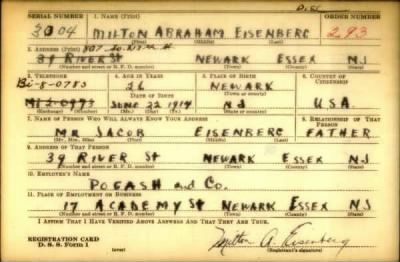 SERIAL NUMBER 1. NAME (Print) ORDER NUMBER
3004 MILTON ABRAHAM EISENBERG 293
(First) (Middle) (Last)
2. ADDRESS (Print)
39 RIVER ST NEWARK ESSEX NJ
(Number and street or R. F. D. number) (Town) (County) (State)
3. TELEPHONE 4. AGE IN YEARS 5. PLACE OF BIRTH 6. COUNTRY OF CITIZENSHIP
Bi-8-0785 26 NEWARK
DATE OF BIRTH (Town or county)
MI 2-0973 JUNE 22 1914 NJ U.S.A.
(Exchange) (Number) (Mo.) (Day) (Yr.) (State or country)
7. NAME OF PERSON WHO WILL ALWAYS KNOW YOUR ADDRESS 8. RELATIONSHIP OF THAT PERSON
MR JACOB EISENBERG FATHER
(Mr., Mrs., Miss) (First) (Middle) (Last)
9. ADDRESS OF THAT PERSON
39 RIVER St NEWARK ESSEX NJ
(Number and street or R. F. D. number) (Town) (County) (State)
10. EMPLOYER'S NAME
POGASH and Co.
11. PLACE OF EMPLOYMENT OR BUSINESS
17 ACADEMY St NEWARK ESSEX NJ
(Number and street or R. F. D. number) (Town) (County) (State)
I AFFIRM THAT I HAVE VERIFIED ABOVE ANSWERS AND THAT THEY ARE TRUE.
REGISTRATION CARD
D. S. S. Form 1 (over) Milton A. Eisenberg
(Registrant's signature)